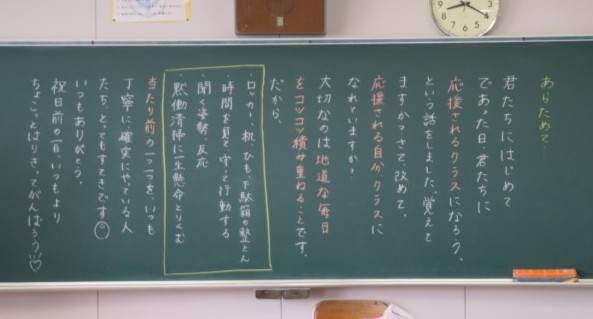 あらためて
君たちにはじめて
であった日、君たちに
応援されるクラスになろう、
という話をしました。覚えて
ますか?さて、改めて。
応援される自分、クラスに
なれていますか?
大切なのは地道な毎日
をコツコツ積み重ねることです。
だから、
・ロッカー、机、ひも、下駄箱の整とん
・時間を見て、守って行動する
・聞く姿勢、反応
・黙働清掃に一生懸命とりくむ
当たり前の一つ一つを、いつも
丁寧に確実にやっている人
たち、とってもすてきです
いつもありがとう。
祝日前の一日、いつもより
ちょこっとはりきってがんばろう♡